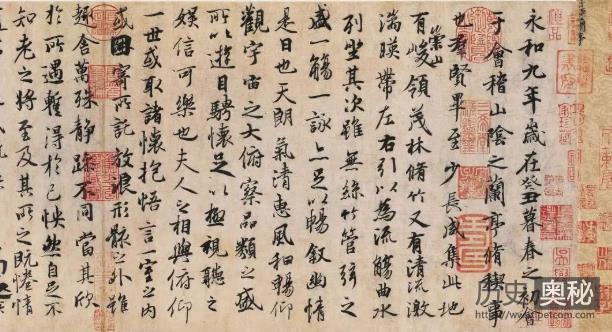 永和九年歲在癸丑暮春之初會
于會稽山陰之蘭亭脩稧事
也羣賢畢至少長咸集此地
有崇山峻領茂林脩竹又有清流激
湍暎帶左右引以為流觴曲水
列坐其次雖無絲竹管弦之
盛一觴一詠亦足以暢敘幽情
是日也天朗氣清惠風和暢仰
觀宇宙之大俯察品類之盛
所以遊目騁懷足以極視聽之
娛信可樂也夫人之相與俯仰
一世或取諸懷抱悟言一室之內
或因寄所託放浪形骸之外雖
趣舍萬殊靜躁不同當其欣
於所遇暫得於己怏然自足不
知老之將至及其所之既惓情
历史奥秘